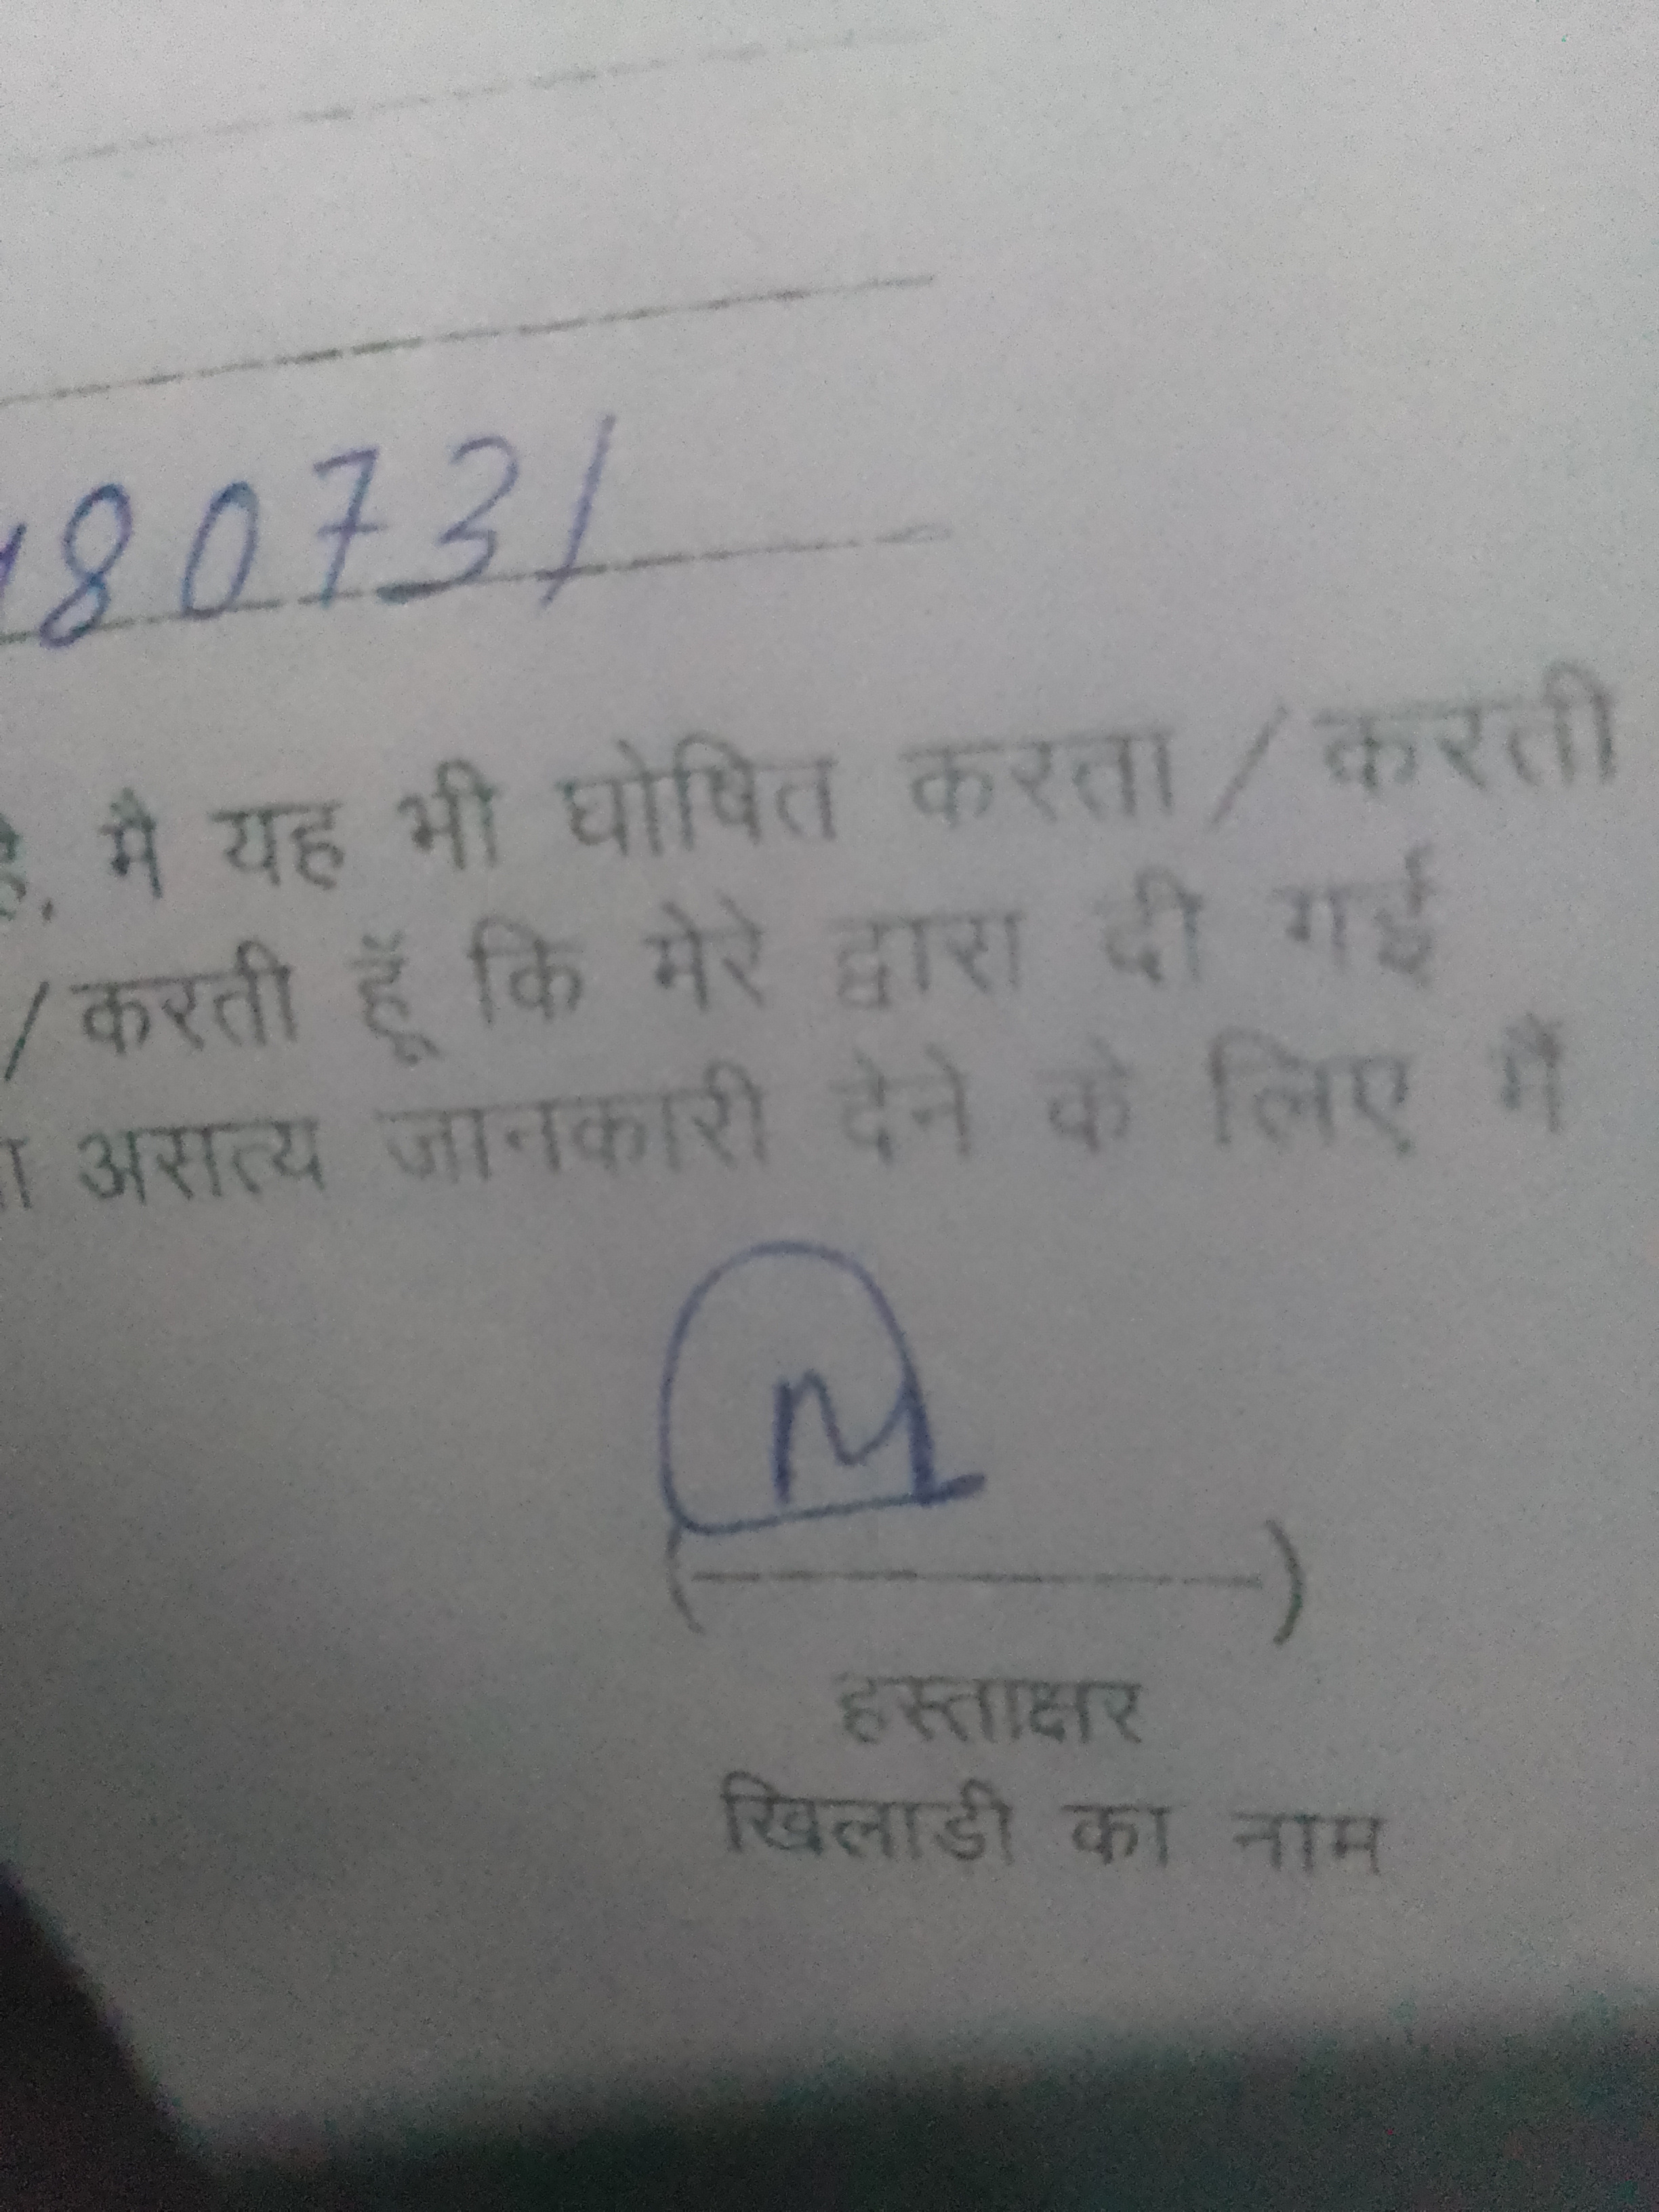 80731
है. मै यह भी घोषित करता / करती
/ करती हूँ कि मेरे द्वारा दी गई
असत्य जानकारी देने के लिए मैं
M
( )
हस्ताक्षर
खिलाडी का नाम